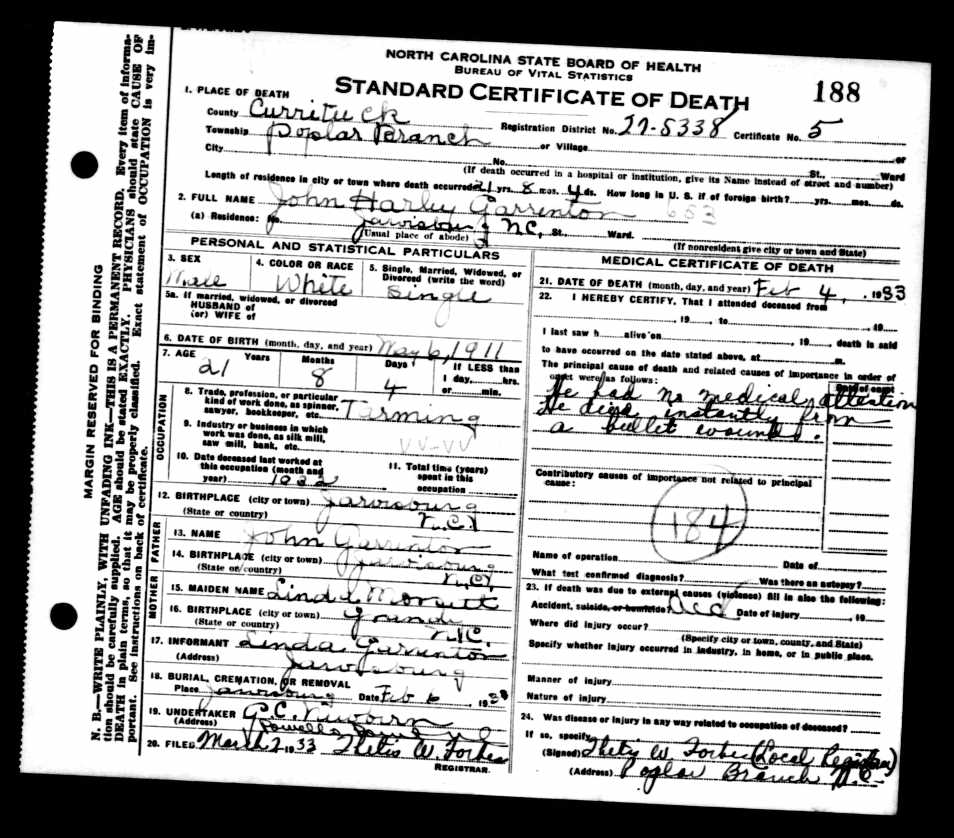 NORTH CAROLINA STATE BOARD OF HEALTH
BUREAU OF VITAL STATISTICS
STANDARD CERTIFICATE OF DEATH
188
1. PLACE OF DEATH
County Currituck
Registration District No. 27-5338 Certificate No. 5
Township Poplar Branch
City or Village or
No. St., Ward
(If death occurred in a hospital or institution, give its Name instead of street and number)
Length of residence in city or town where death occurred 21 yrs. 8 mos. 4 ds. How long in U. S. if of foreign birth? yrs. mos. ds.
2. FULL NAME John Harley Garrenton 653
(a) Residence: No. Jarvisburg N.C. St., Ward.
(Usual place of abode) (If nonresident give city or town and State)
PERSONAL AND STATISTICAL PARTICULARS
3. SEX Male
4. COLOR OR RACE White
5. Single, Married, Widowed, or Divorced (write the word) Single
5a. If married, widowed, or divorced
HUSBAND of
(or) WIFE of
6. DATE OF BIRTH (month, day, and year) May 6, 1911
7. AGE Years Months Days If LESS than
21 8 4 1 day, hrs.
or min.
OCCUPATION
8. Trade, profession, or particular
kind of work done, as spinner,
sawyer, bookkeeper, etc. Farming
9. Industry or business in which
work was done, as silk mill,
saw mill, bank, etc. VV-VV
10. Date deceased last worked at
this occupation (month and
year) 1932
11. Total time (years)
spent in this
occupation
12. BIRTHPLACE (city or town) Jarvisburg
(State or country) N.C.
FATHER
13. NAME John Garrenton
14. BIRTHPLACE (city or town) Jarvisburg
(State or country) N.C.
MOTHER
15. MAIDEN NAME Linda
16. BIRTHPLACE (city or town)
(State or country) N.C.
17. INFORMANT Linda Garrenton
(Address) Jarvisburg
18. BURIAL, CREMATION, OR REMOVAL
Place Jarvisburg Date Feb 6, 1933
19. UNDERTAKER G.C. Newbern
(Address) Powells Point N C
20. FILED March 7 1933 Thetis W. Forbes
REGISTRAR.
MEDICAL CERTIFICATE OF DEATH
21. DATE OF DEATH (month, day, and year) Feb 4, 1933
22. I HEREBY CERTIFY, That I attended deceased from
, 19 , to , 19
I last saw h alive on , 19 , death is said
to have occurred on the date stated above, at m.
The principal cause of death and related causes of importance in order of
onset were as follows: Date of onset
He had no medical attention
He died instantly from
a bullet wound.
Contributory causes of importance not related to principal
cause:
184
Name of operation Date of
What test confirmed diagnosis? Was there an autopsy?
23. If death was due to external causes (violence) fill in also the following:
Accident, suicide, or homicide? Acd Date of injury , 19
Where did injury occur?
(Specify city or town, county, and State)
Specify whether injury occurred in industry, in home, or in public place.
Manner of injury
Nature of injury
24. Was disease or injury in any way related to occupation of deceased?
If so, specify
(Signed) Thetis W Forbes (Local Registrar)
(Address) Poplar Branch N.C.
MARGIN RESERVED FOR BINDING
N. B.—WRITE PLAINLY, WITH UNFADING INK—THIS IS A PERMANENT RECORD. Every item of informa-
tion should be carefully supplied. AGE should be stated EXACTLY. PHYSICIANS should state CAUSE OF
DEATH in plain terms, so that it may be properly classified. Exact statement of OCCUPATION is very im-
portant. See instructions on back of certificate.